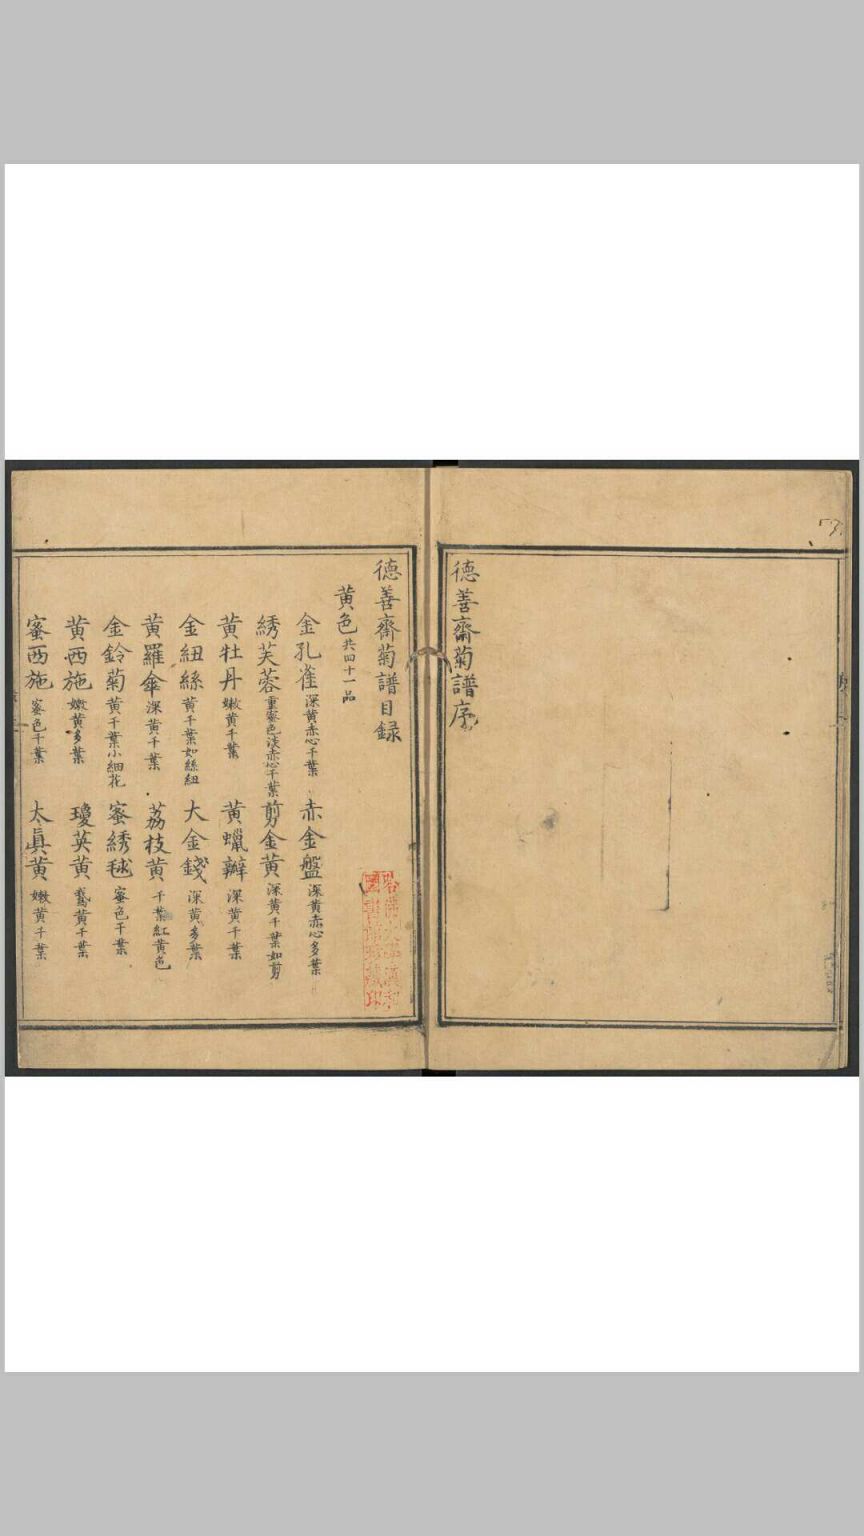 德善齋菊譜序
德善齋菊譜目録
黄色共四十一品
金孔雀深黄赤心千葉 赤金盤深黄赤心多葉
綉芙蓉重蜜色淡赤心千葉 剪金黄深黄千葉如剪
黄牡丹嫩黄千葉 黄蠟瓣深黄千葉
金紐絲黄千葉如絲紐 大金錢深黄多葉
黄羅傘深黄千葉 荔枝黄千葉紅黄色
金鈴菊黄千葉小細花 蜜綉毬蜜色千葉
黄西施嫩黄多葉 瓊英黄鵞黄千葉
蜜西施蜜色千葉 太真黄嫩黄千葉